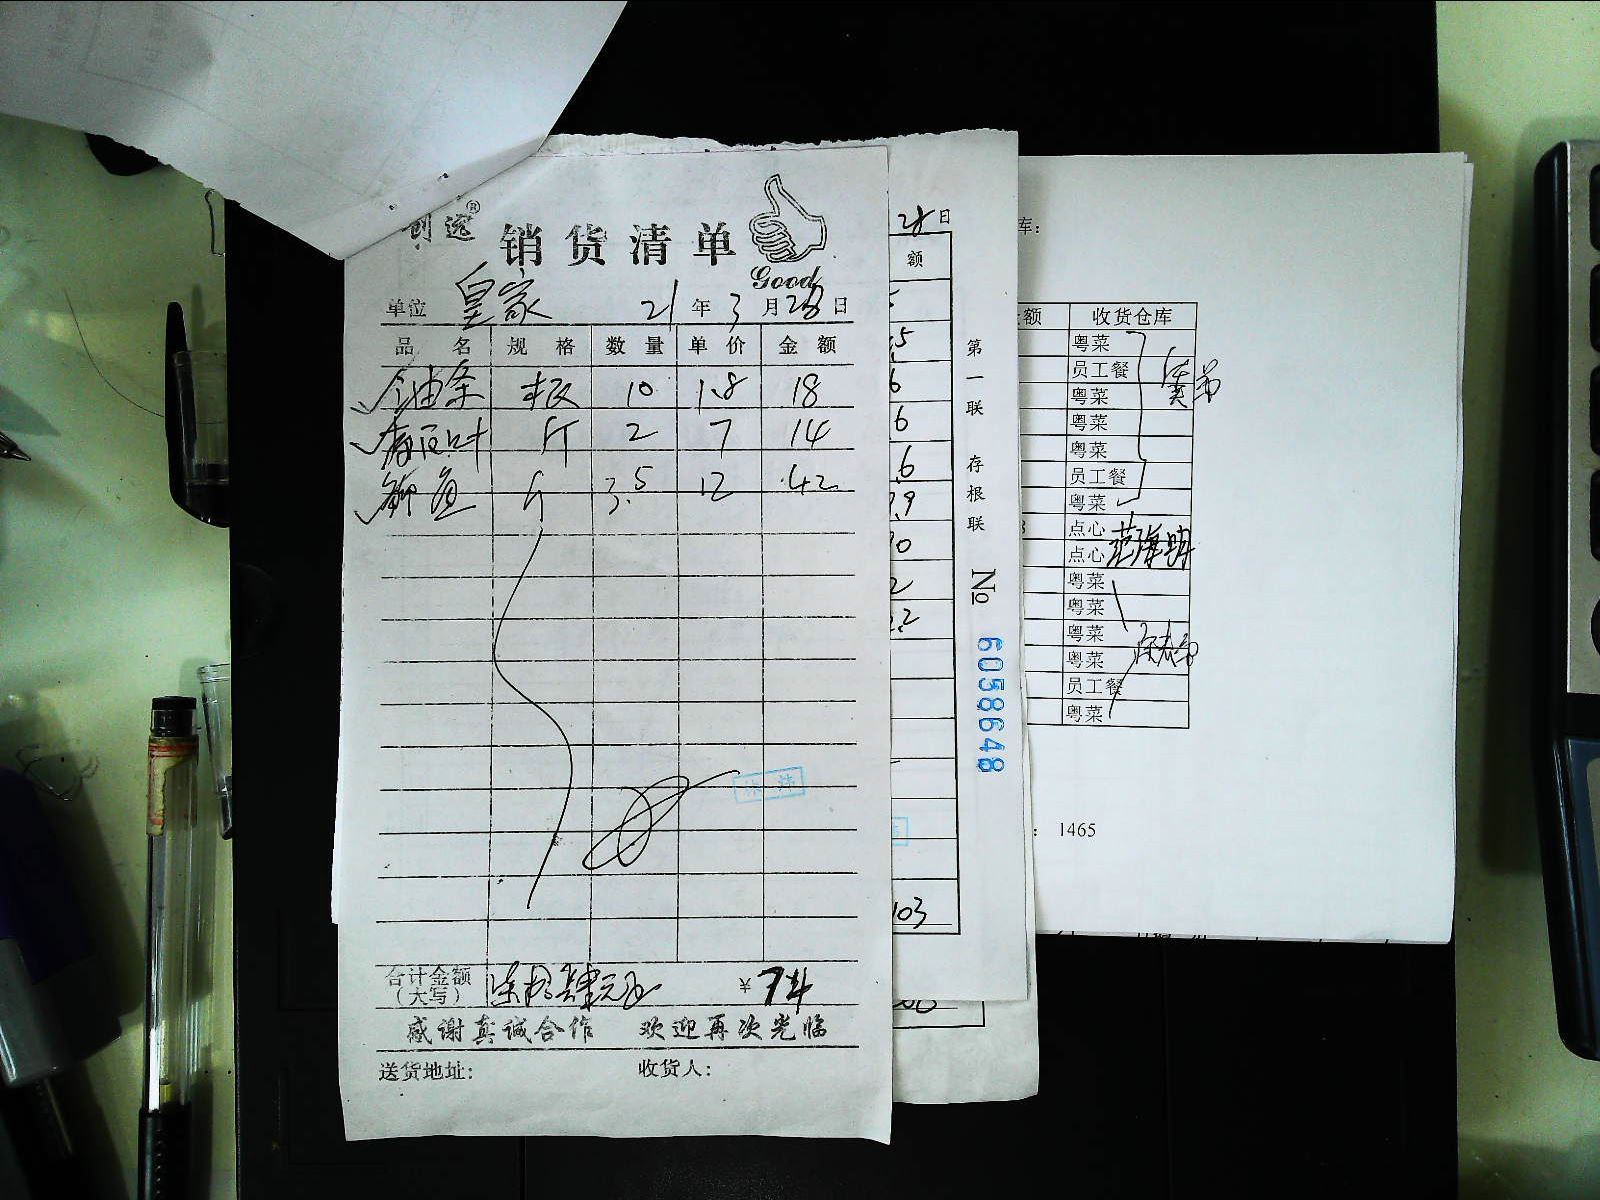 创远®
销货清单
Good
单位 皇家 21年3月28日
品名 规格 数量 单价 金额
油条 根 10 1.8 18
斤 2 7 14
斤 3.5 12 42
合计金额(大写) 柒拾肆元正 ¥74
感谢真诚合作 欢迎再次光临
送货地址: 收货人:
28日
额
5
6
6
.6
.9
0
2
.2
103
第一联 存根联
№ 6058648
库:
额 收货仓库
粤菜
员工餐
粤菜
粤菜
粤菜
员工餐
粤菜
点心
点心
粤菜
粤菜
粤菜
粤菜
员工餐
粤菜
: 1465